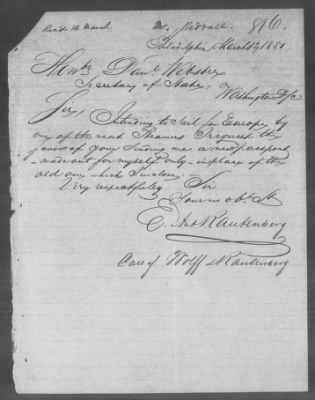 Rec'd 14 March. 816.
Philadelphia, March 12, 1851
Honble Danl Webster
Secretary of State,
Washington D/c
Sir, Intending to Sail for Europe by
one of the next Steamers I request the
favour of your Sending me a new passport
made out for myself only in place of the
old one which I inclose.
Very respectfully Sir
Your mo obt St
C. Aug Rautenberg
Care of Wolff & Rautenberg